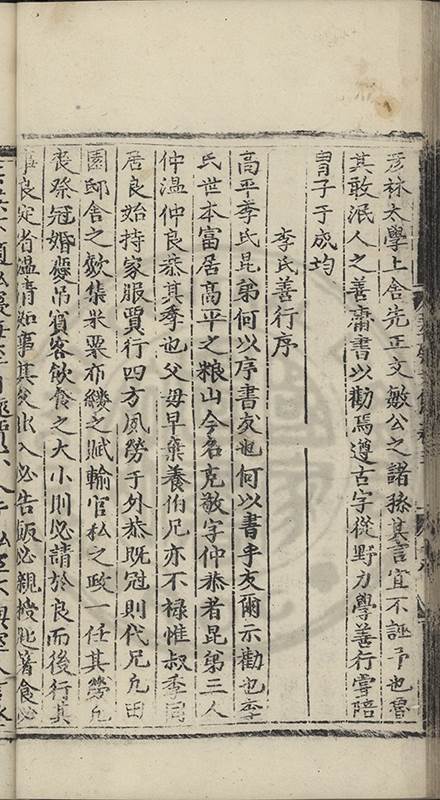 彥林太學上舍先正文敏公之諸孫其言宜不誣予也魯
其敢泯人之善肅書以勸焉遵古字從野力學善行嘗陪
冑子于成均
李氏善行序
高平李氏昆弟何以序書友也何以書乎友爾示勸也李
氏世本富居高平之粮山今名克敬字仲恭者昆第三人
仲溫仲良恭其季也父母早棄養伯兄亦不祿惟叔季同
居良始持家服賈行四方夙勞于外恭旣冠則代兄凡田
園邸舍之斂集米粟布縷之賦輸官私之政一任其勞凡
喪祭冠婚慶吊賓客飮食之大小則必請於良而後行其
事良定省溫凊如事其父出入必告飯必親授匕箸食必